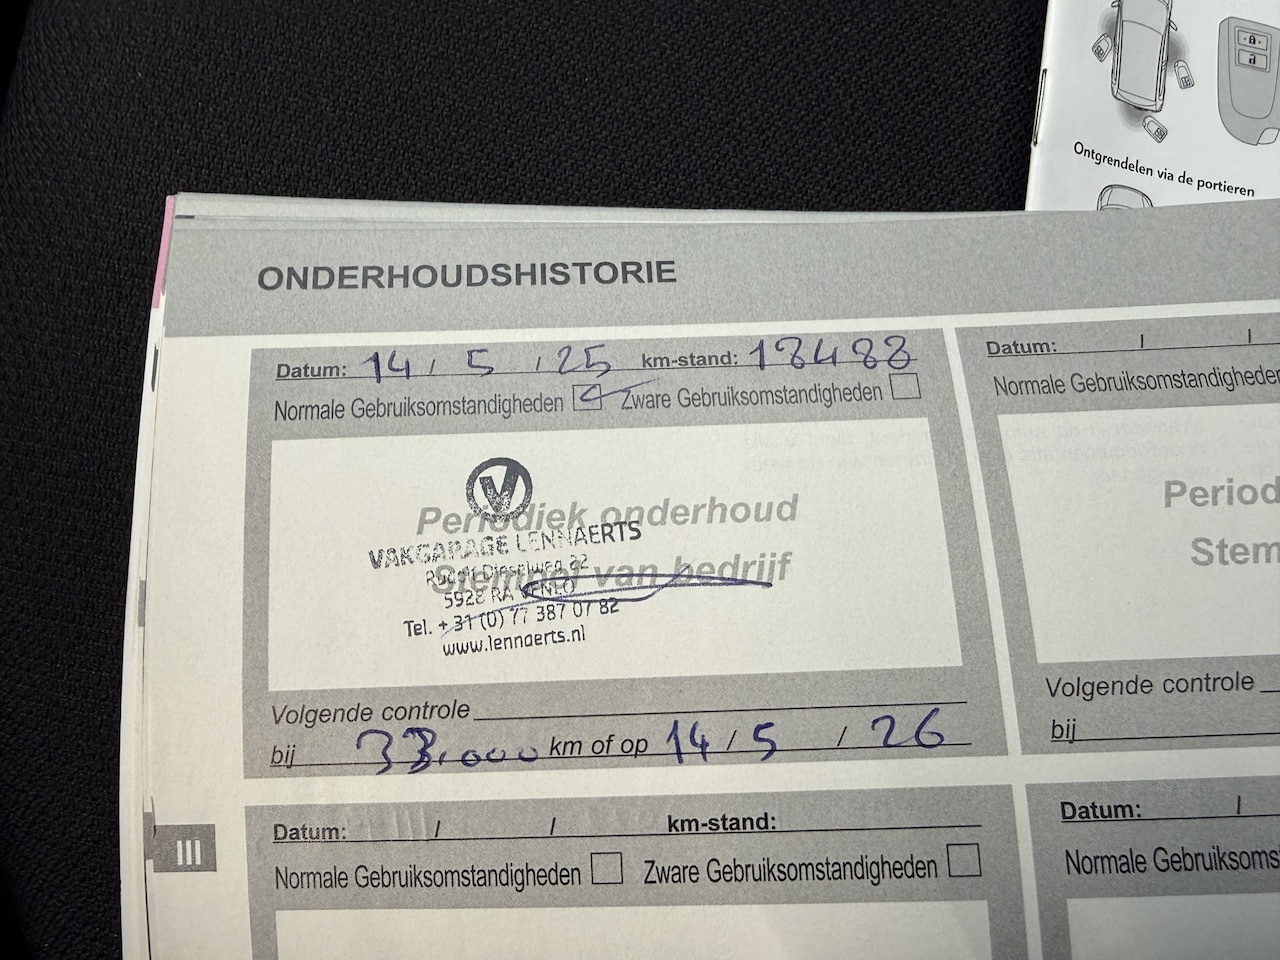 Ontgrendelen via de portieren
ONDERHOUDSHISTORIE
Datum: 14 / 5 / 25 km-stand: 18488
Normale Gebruiksomstandigheden Zware Gebruiksomstandigheden
V
Periodiek onderhoud
Stempel van bedrijf
VAKGARAGE LENNAERTS
Rudolf Dieselweg 22
5928 RA VENLO
Tel. +31 (0) 77 387 07 82
www.lennaerts.nl
Volgende controle
bij 33.000 km of op 14 / 5 / 26
Datum: / /
Normale Gebruiksomstandigheden
Period
Stem
Volgende controle
bij
III
Datum: / / km-stand:
Normale Gebruiksomstandigheden Zware Gebruiksomstandigheden
Datum: /
Normale Gebruiksoms